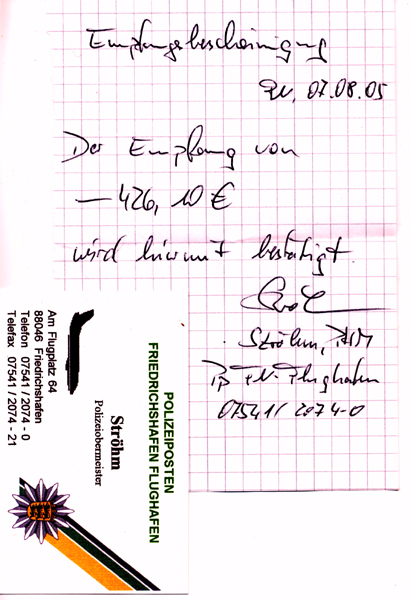 Empfangsbescheinigung
FN, 07.08.05
Der Empfang von
— 426,10 €
wird hiermit bestätigt.
Ströhm, POM
PP FN-Flughafen
07541/2074-0
POLIZEIPOSTEN
FRIEDRICHSHAFEN FLUGHAFEN
Ströhm
Polizeiobermeister
Am Flugplatz 64
88046 Friedrichshafen
Telefon 07541/2074-0
Telefax 07541/2074-21